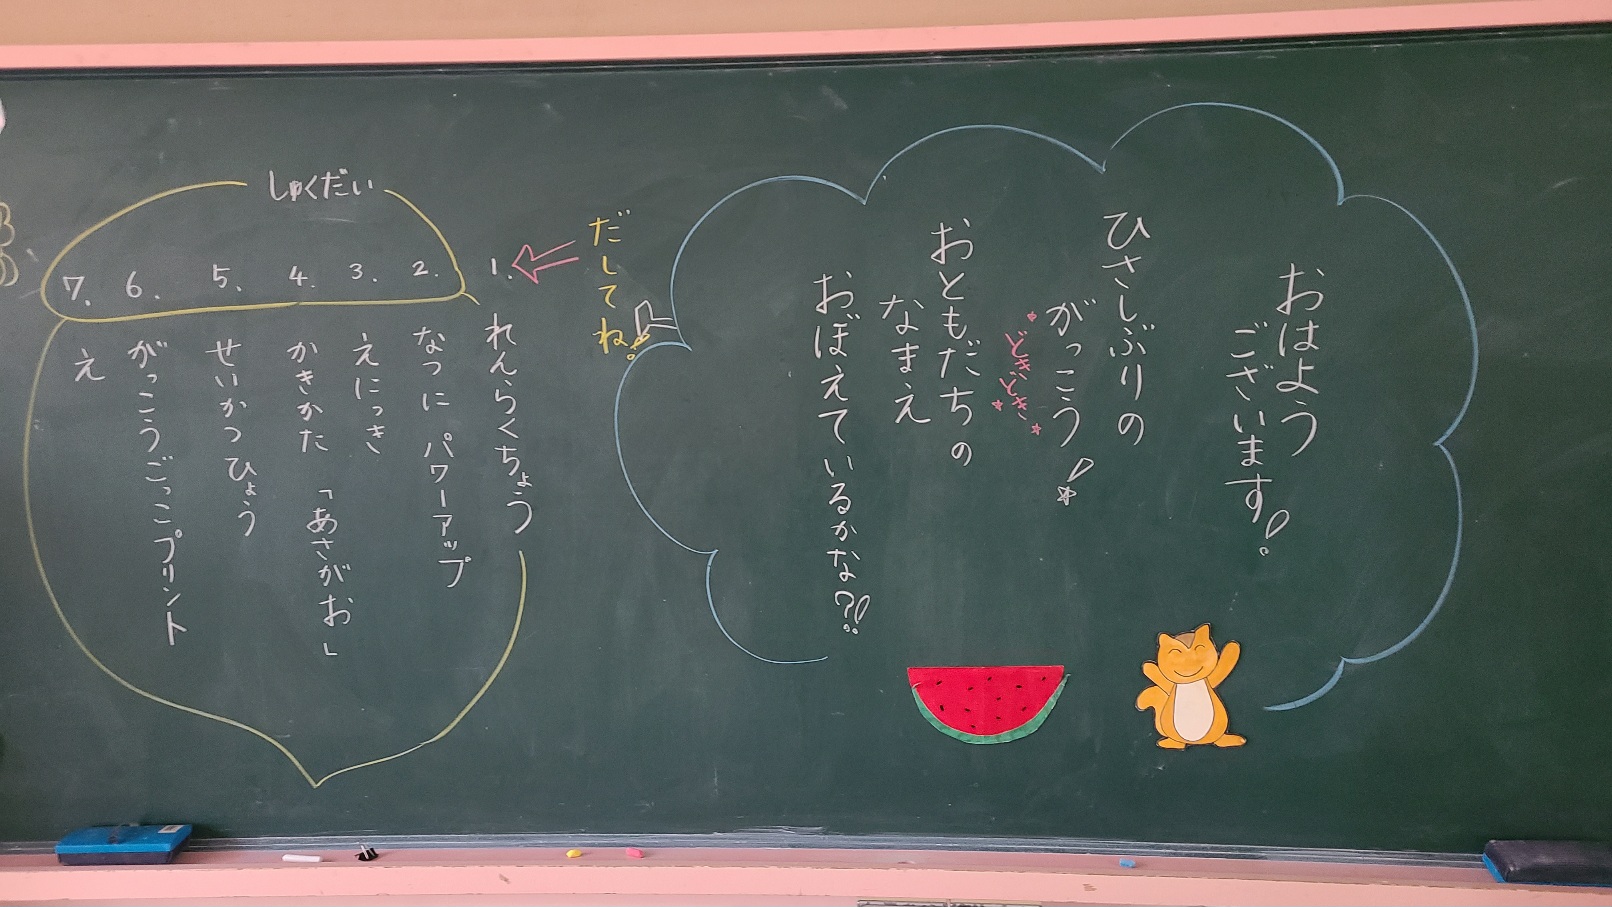 おはよう
ございます!
ひさしぶりの
がっこう!
どきどき
おともだちの
なまえ
おぼえているかな?!
だしてね!
しゅくだい
1. れんらくちょう
2. なつに パワーアップ
3. えにっき
4. かきかた 「あさがお」
5. せいかつひょう
6. がっこうごっこプリント
7. え